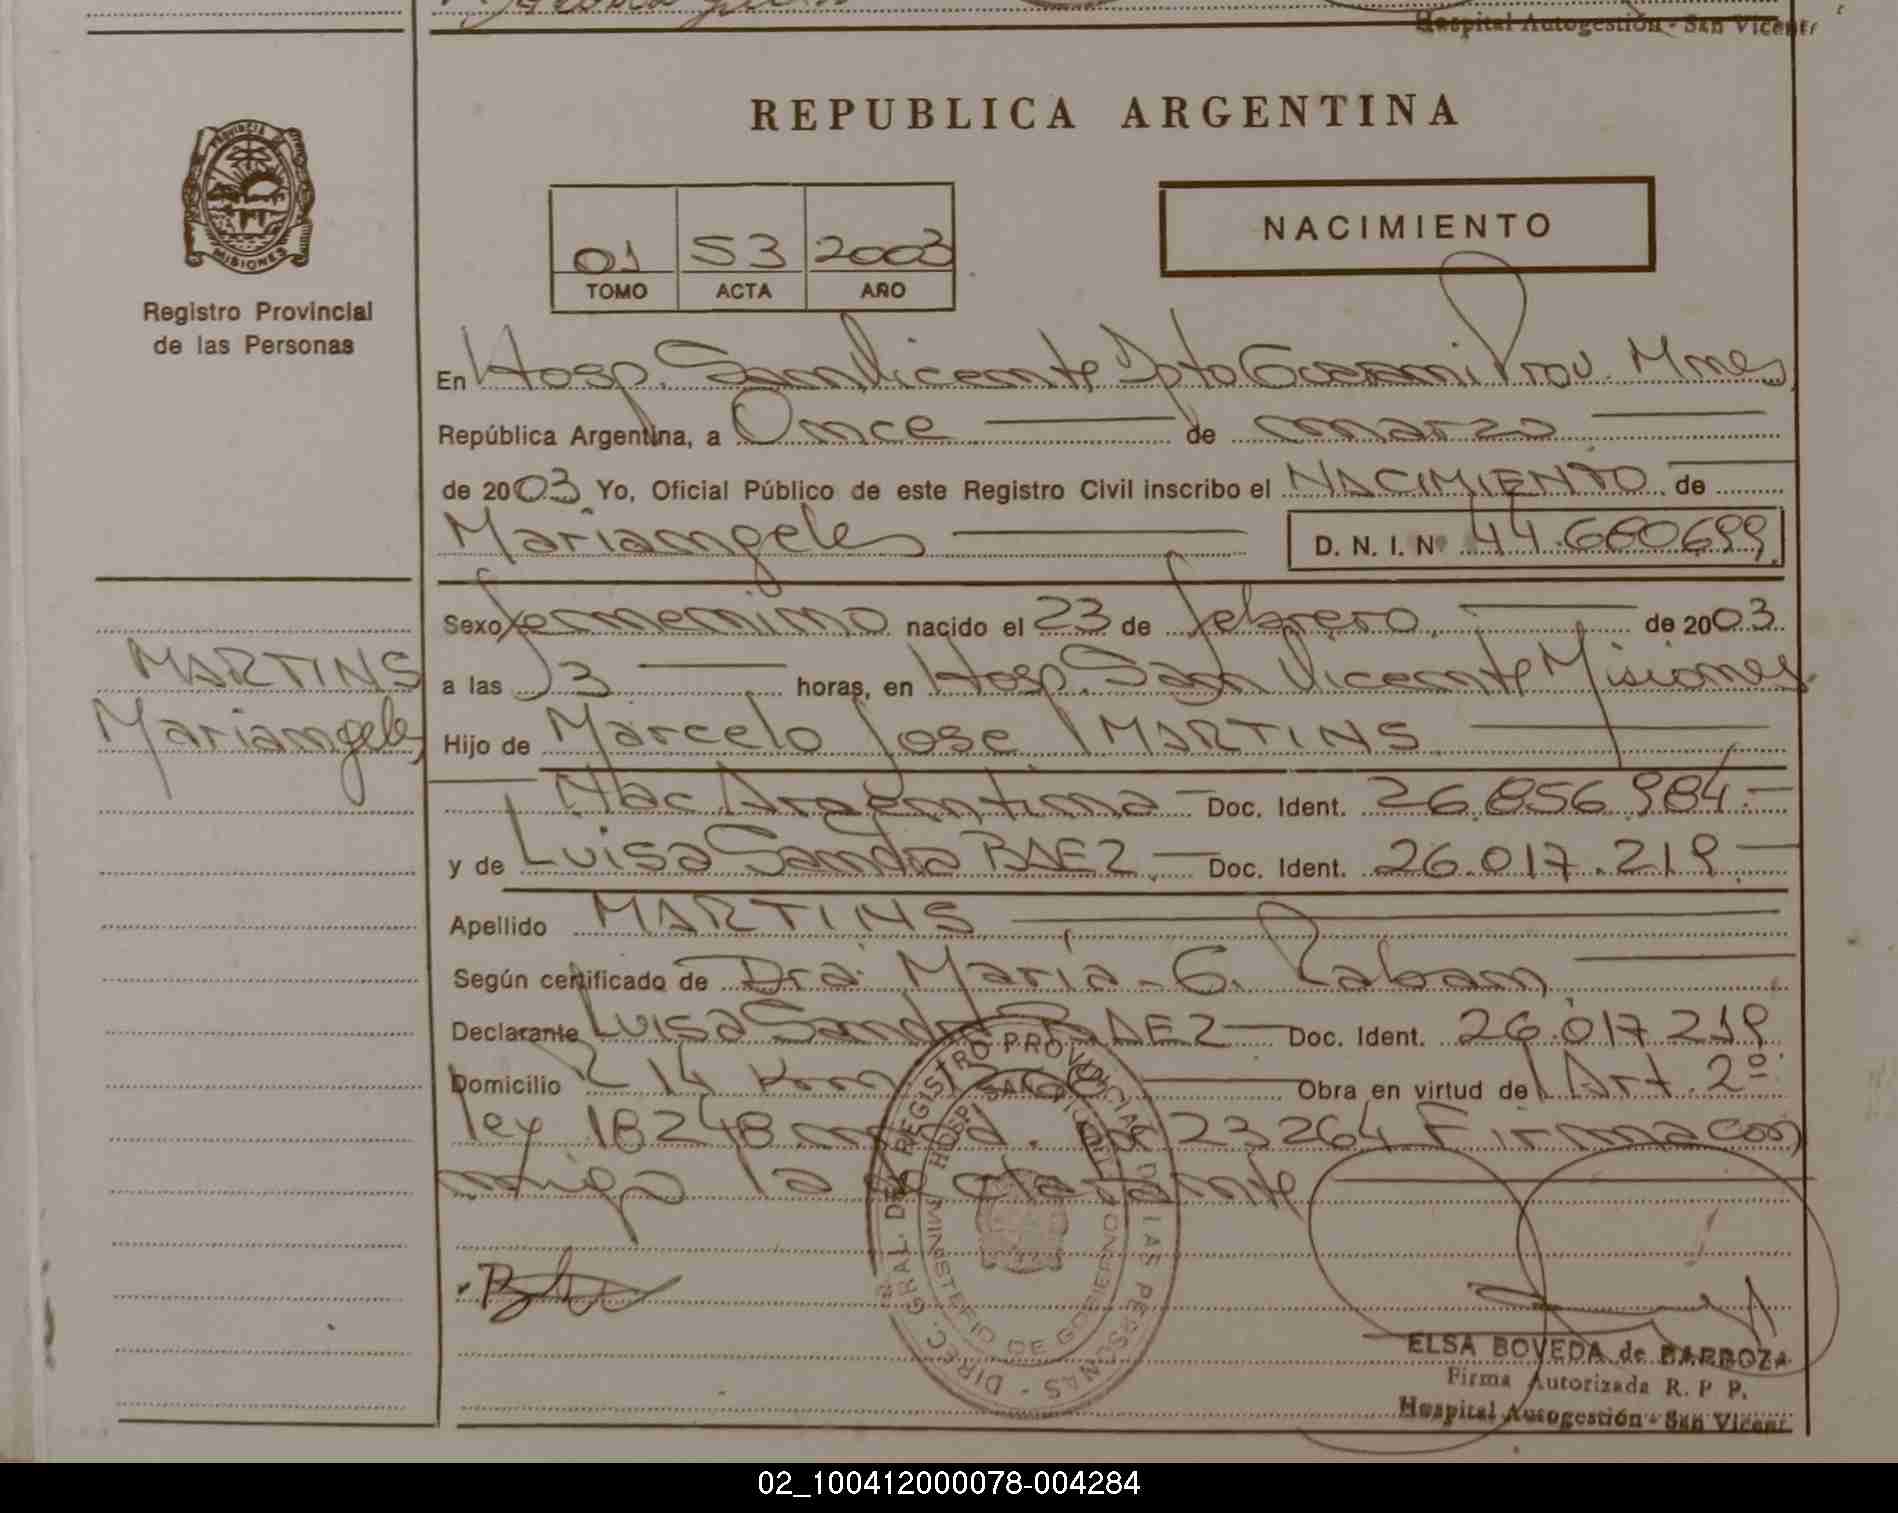 Hospital Autogestión - San Vicent
REPUBLICA ARGENTINA
PROVINCIA DE MISIONES
Registro Provincial
de las Personas
01 53 2003
TOMO ACTA AÑO
NACIMIENTO
En Hosp. San Vicente Dpto Guarani Prov. Mnes
República Argentina, a Once de marzo
de 2003 Yo, Oficial Público de este Registro Civil inscribo el NACIMIENTO de
Mariangeles D. N. I. Nº 44.680699
Sexo femenino nacido el 23 de febrero de 2003
a las 13 horas, en Hosp. San Vicente Misiones
MARTINS
Mariangeles
Hijo de Marcelo Jose MARTINS
Nac. Argentina Doc. Ident. 26.856.984
y de Luisa Sandra BAEZ Doc. Ident. 26.017.219
Apellido MARTINS
Según certificado de Dra. Maria G.
Declarante Luisa Sandra BAEZ Doc. Ident. 26.017219
Domicilio 14 Km Obra en virtud del Art. 2º
ley 18248 23264 Firma con
migo la declarante
DIREC. GRAL. DEL REGISTRO PROVINCIAL DE LAS PERSONAS
MINISTERIO DE GOBIERNO
HOSP. SAN
ELSA BOVEDA de BARBOZA
Firma Autorizada R. P. P.
Hospital Autogestión - San Vicent
02_100412000078-004284